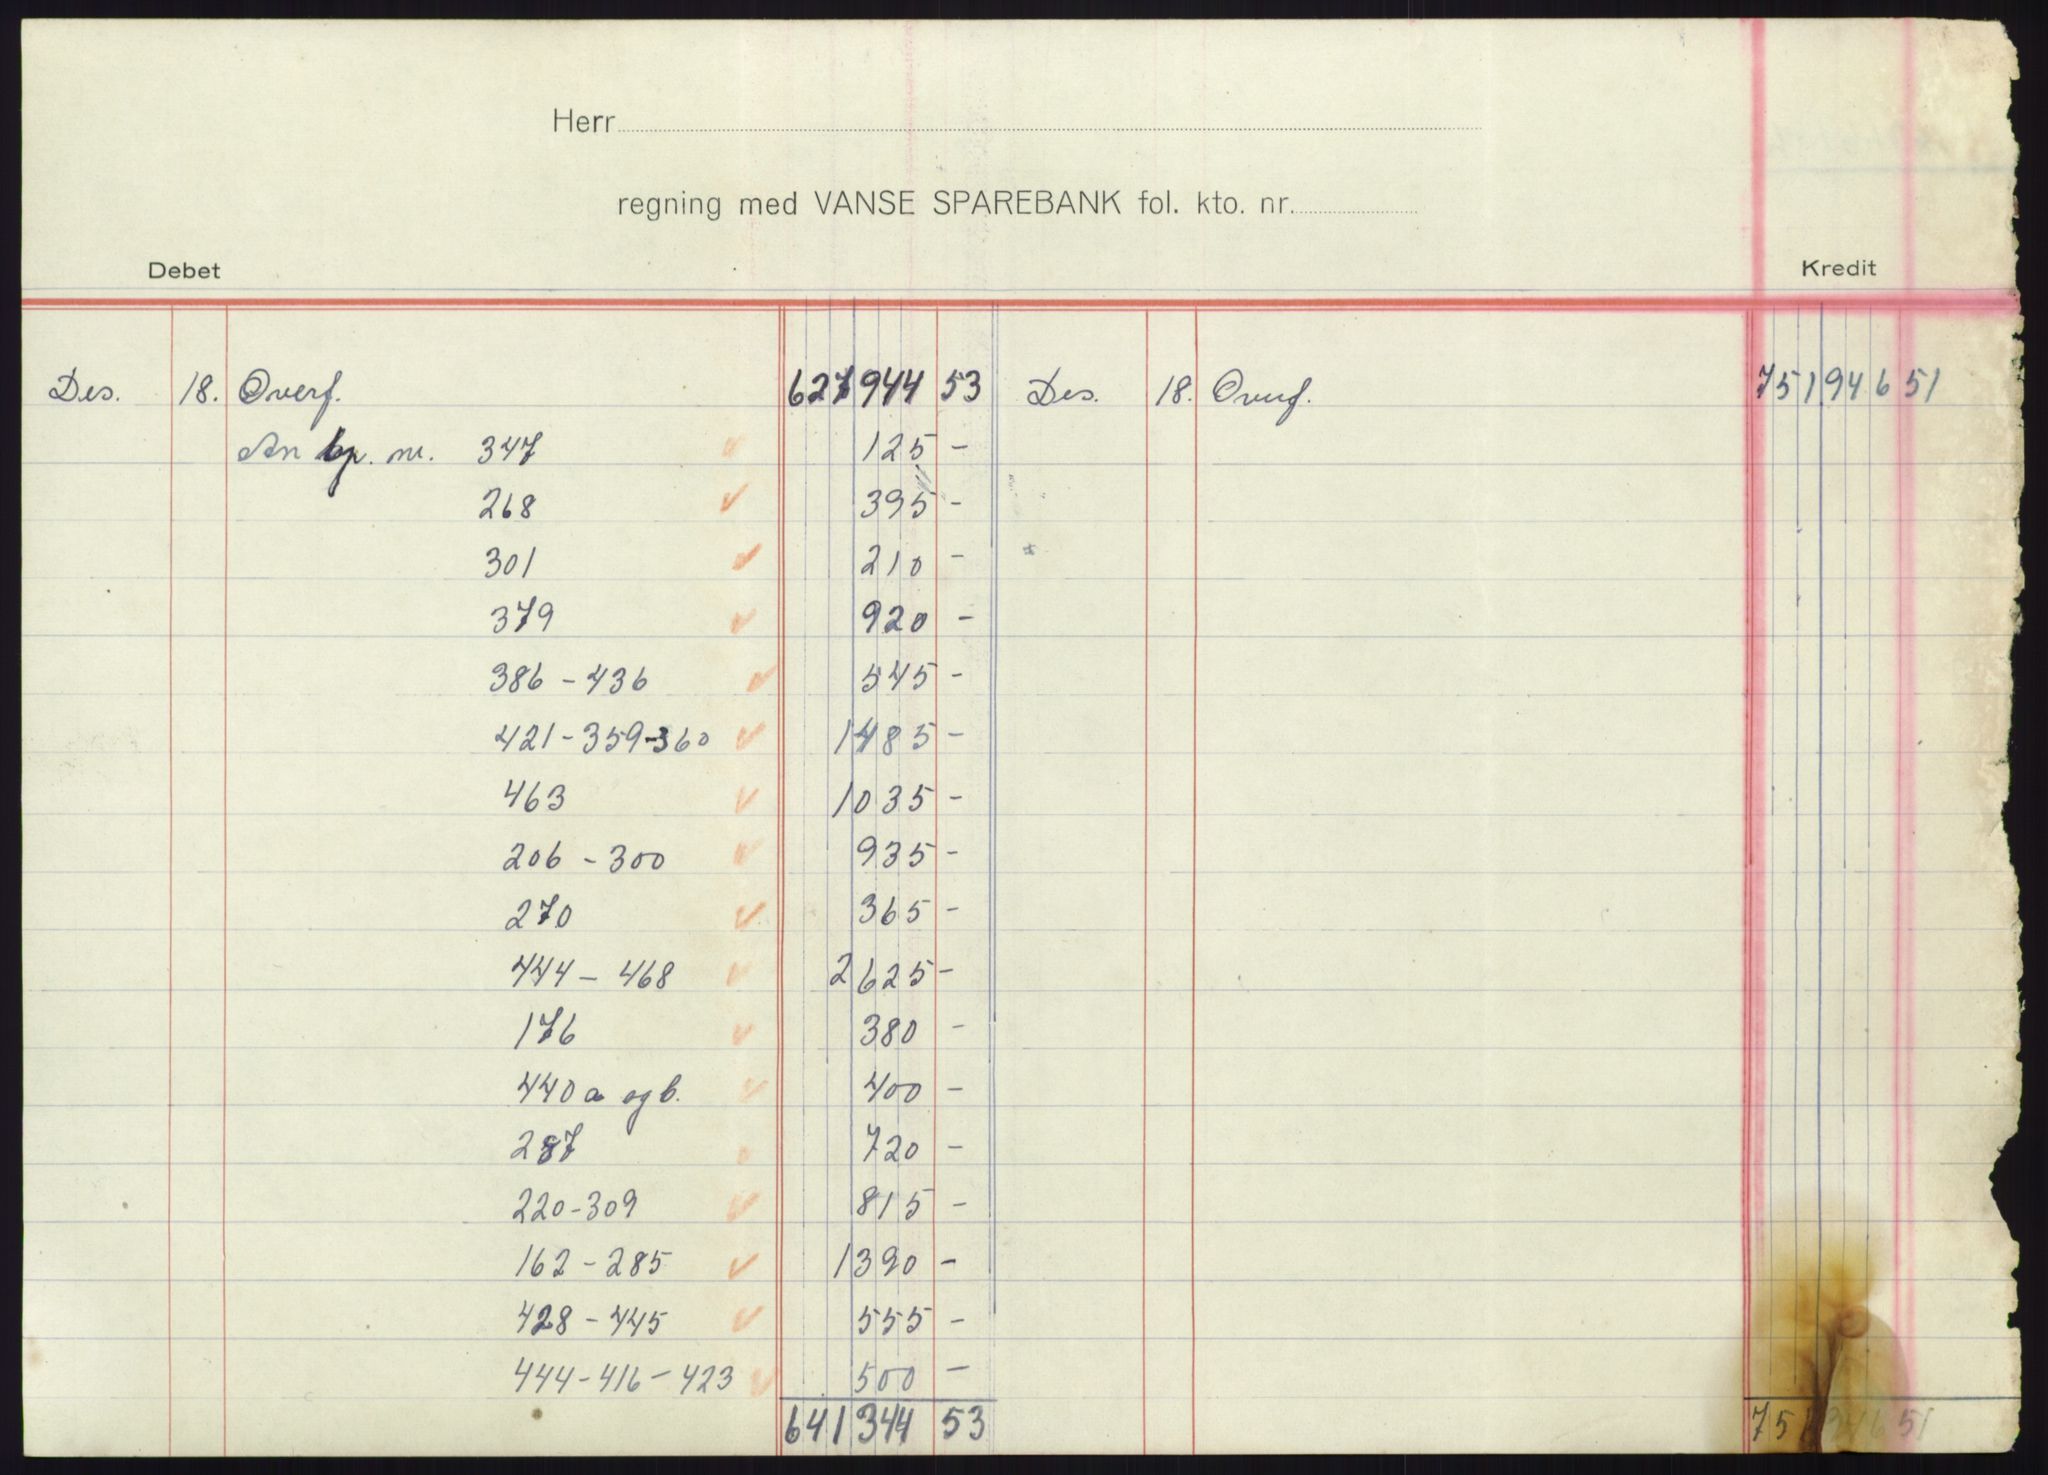 Herr
regning med VANSE SPAREBANK fol. kto. nr.
Debet Kredit
Des. 18. Overf. 627 944 53 Des. 18. Overf. 751 946 51
An bp. nr. 347 125 -
268 395 -
301 210 -
379 920 -
386 - 436 545 -
421 - 359 - 360 1485 -
463 1035 -
206 - 300 935 -
270 365 -
444 - 468 2625 -
176 380 -
440 a og b. 400 -
287 720 -
220 - 309 815 -
162 - 285 1390 -
428 - 445 555 -
444 - 416 - 423 500 -
641 344 53 751 946 51